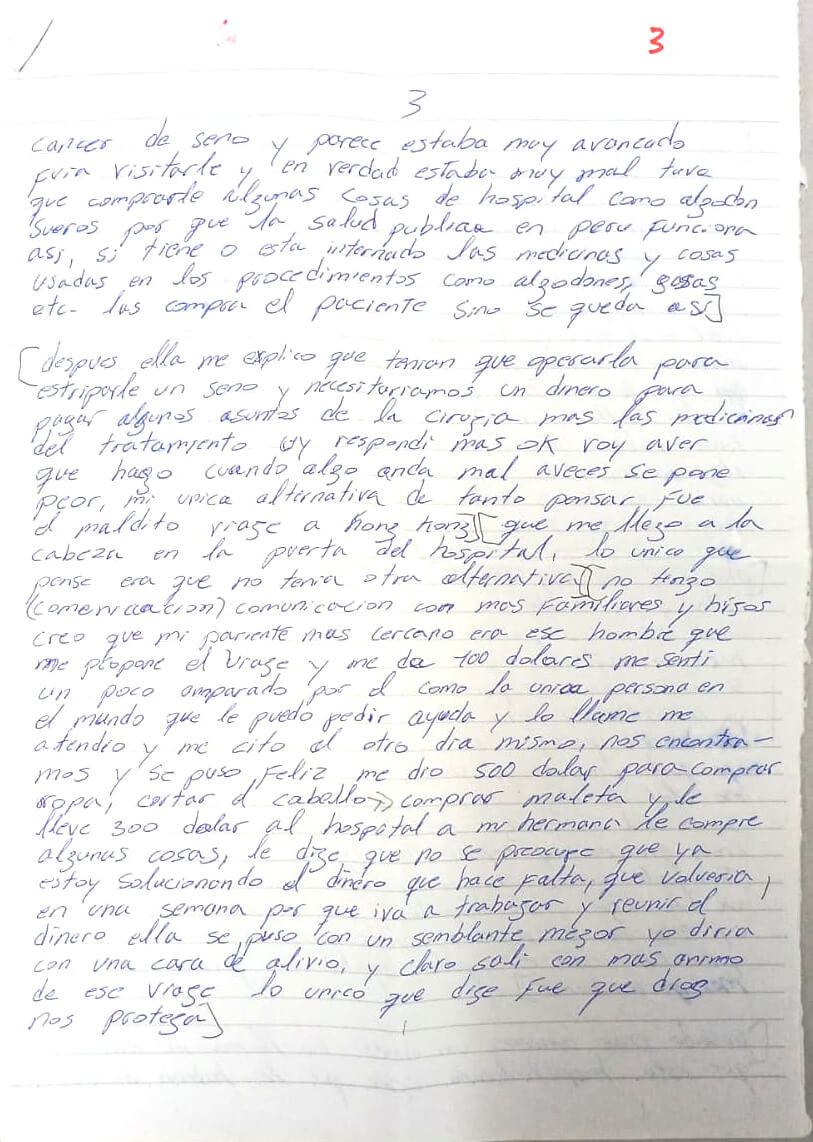 3
3
cancer de seno y parece estaba muy avanzado
fuia visitarle y en verdad estaba muy mal tuve
que comprarle algunas cosas de hospital como algodon
sueros por que la salud publica en peru funciona
asi, si tiene o esta internado las medicinas y cosas
usadas en los procedimientos como algodones, gasas
etc- las compra el paciente sino se queda asi]
[despues ella me explico que tenian que operarla para
estriparle un seno y necesitariamos un dinero para
pagar algunos asuntos de la cirugia mas las medicinas
del tratamiento y respondi mas ok voy aver
que hago cuando algo anda mal aveces se pone
peor, mi unica alternativa de tanto pensar fue
el maldito viage a hong hong][que me llego a la
cabeza en la puerta del hospital, lo unico que
pense era que no tenia otra alternativa][no tengo
comunicacion con mas familiares y higos
creo que mi pariente mas cercano era ese hombre que
me propone el viage y me da 100 dolares me senti
un poco amparado por el como la unica persona en
el mundo que le puedo pedir ayuda y lo llame me
atendio y me cito al otro dia mismo, nos encontra-
mos y se puso feliz me dio 500 dolar para comprar
ropa, cortar el cabello comprar maleta y le
lleve 300 dolar al hospital a mi hermana le compre
algunas cosas, le dige que no se preocupe que ya
estoy solucionondo el dinero que hace falta, que volveria,
en una semana por que iva a trabagar y reunir el
dinero ella se puso con un semblante megor yo diria
con una cara de alivio, y claro sali con mas animo
de ese viage lo unico que dige fue que dios
nos protega]